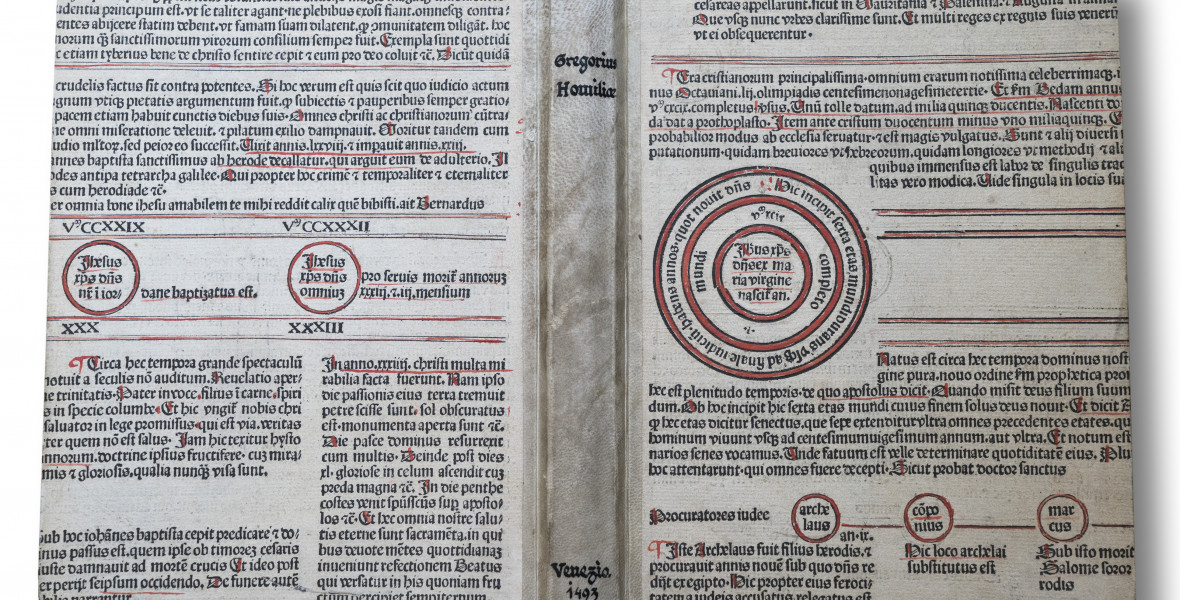 identia principium est. vt se taliter agant. ne plebibus exosi fiant. omnesq contra
entes abijcere statim debent. vt famam suam dilatent.
norum q̃ sanctissimorum virorum consilium semper fuit. Exempla sunt quottidi
c etiam tyberius bene de christo sentire cepit ⁊ eum pro deo coluit ⁊c̃. Dicũt quidã
crudelis factus sit contra potentes. Si hoc verum est quis scit quo iudicio actum
agnum vtiq pietatis argumentum fuit. subiectis ⁊ pauperibus semper gratio
pacem etiam habuit cunctis diebus suis. Omnes christi ac christianorum
ne omni miseratione deleuit. ⁊ pilatum exilio dampnauit. Moritur tandem cum
udio sed peior eo successit. Vixit annis. lxxviij. ⁊ impauit annis. xxiij.
annes baptista sanctissimus ab herode decallatur. qui arguit eum de adulterio. Jl
odes antipa tetrarcha galilee. Qui propter hoc crimẽ ⁊ temporaliter ⁊ eternaliter
s cum herodiade ⁊c̃.
er omnia bone ihesu amabilem te mihi reddit calix quẽ bibisti. ait Bernardus
VꝰCCXXIX VꝰCCXXXII
Jhesus
xp̃s dñs
nr̃ i ior
dane baptizatus est.
Jhesus
xp̃s dñs
omniuz
pro seruis morit̃ annoruz
xxxiij. ⁊. iij. mensium
XXX XXXIII
Circa hec tempora grande spectaculũ
notuit a seculis nõ auditum. Reuelatio aper
ne trinitatis. Pater in voce. filius ĩ carne. spiri
s in specie columbe. Et hic vngit̃ nobis chri
saluator in lege promissus. qui est via. veritas
ter quem nõ est salus. Jam hic texitur hysto
annorum. doctrine ipsius fructifere. cuz mira
mis ⁊ gloriosis. qualia nunq̃ visa sunt.
sub hoc iohãnes baptista cepit predicare ⁊ do
inus passus est. quem ipse ob timorez cesaris
iuste damnauit ad mortẽ crucis Et ideo post
ex perijt seipsum occidendo. De funere autẽ
Jn anno. xxxiij. christi multa mi
rabilia facta fuerunt. Nam ipso
die passionis eius terra tremuit
petre scisse sunt. sol obscuratus
est. monumenta aperta sunt ⁊c̃.
Die pasce dominus resurrexit
cum multis. Deinde post dies
xl. gloriose in celum ascendit cuz
preda magna ⁊c̃. Jn die penthe
costes venit spũssctũs sup̃ aposto
los ⁊c̃. Et hec omnia nostre salu
tis eterne sunt sacramẽta. in qui
bus deuote mẽtes quottidianaz
inueniunt refectionem Beatus
qui versatur in his quoniam fru
ctum percipiet sempiternum
Gregorius
Homiliæ
Venezia.
1493
cesareas appellarunt. sicut in Mauritania ⁊ Palestina.
Que vsq nunc vrbes clarissime sunt. Et multi reges ex regnis suis venerũ
vt ei obsequerentur.
Era cristianorum principalissima. omnium erarum notissima celeberrimaq. i
nus Octauiani. lij. olimpiadis centesimenonagesimetertie. Et km̃ Bedam annus
vꝰcxcix. completus Jhesus. Vnũ tolle datum. ad milia quinq ducentis. Nascenti do
da dat a prothoplasto. Jtem ante cristum ducentum minus vno miliaquinq. E
probabilior modus ab ecclesia seruatur. ⁊ est magis vulgatus. Sunt ⁊ alij diuersi
putationum. quidam breuiores vt hebreorum, quidam longiores vt methodij ⁊ ali
quibus immensus est labor de singulis trac
litas vero modica. Vide singula in locis sui
Hic incipit sexta etas mundi durans vsq ad finale iudiciũ. habens annos. quot nouit dñs
vꝰcxcix completo mundi
Jhus xp̃s
dñs ex ma
ria virgine
nascit̃ an.
.i.
Natus est circa hec tempora dominus nost
gine pura. nouo ordine km̃ prophetica pron
hec est plenitudo temporis. de quo apostolus dicit. Quando misit deus filium suum
dum. Ob hoc incipit hic sexta etas mundi cuius finem solus deus nouit. Et dicit
hec etas dicitur senectus. que sepe extenditur vltra omnes precedentes etates. qu
hominum viuunt vsq ad centesimumuigesimum annum. aut vltra. Et notum est
narios senes vocamus. Vnde fatuum est velle determinare quotiditatẽ eius. Plu
hoc attentarunt. qui omnes fuere decepti. Sicut probat doctor sanctus
Procuratores iudee
arche
laus
an. ix.
cõpo
nius
mar
cus
Jste Archelaus fuit filius herodis. ⁊
procurauit annis nouẽ sub quo dñs re
dijt ex egipto. Hic propter eius feroci
tatem a iudeis accusatus relegatus est
Hic loco archelai
substitutus est
Sub isto morit
Salome soror
rodis